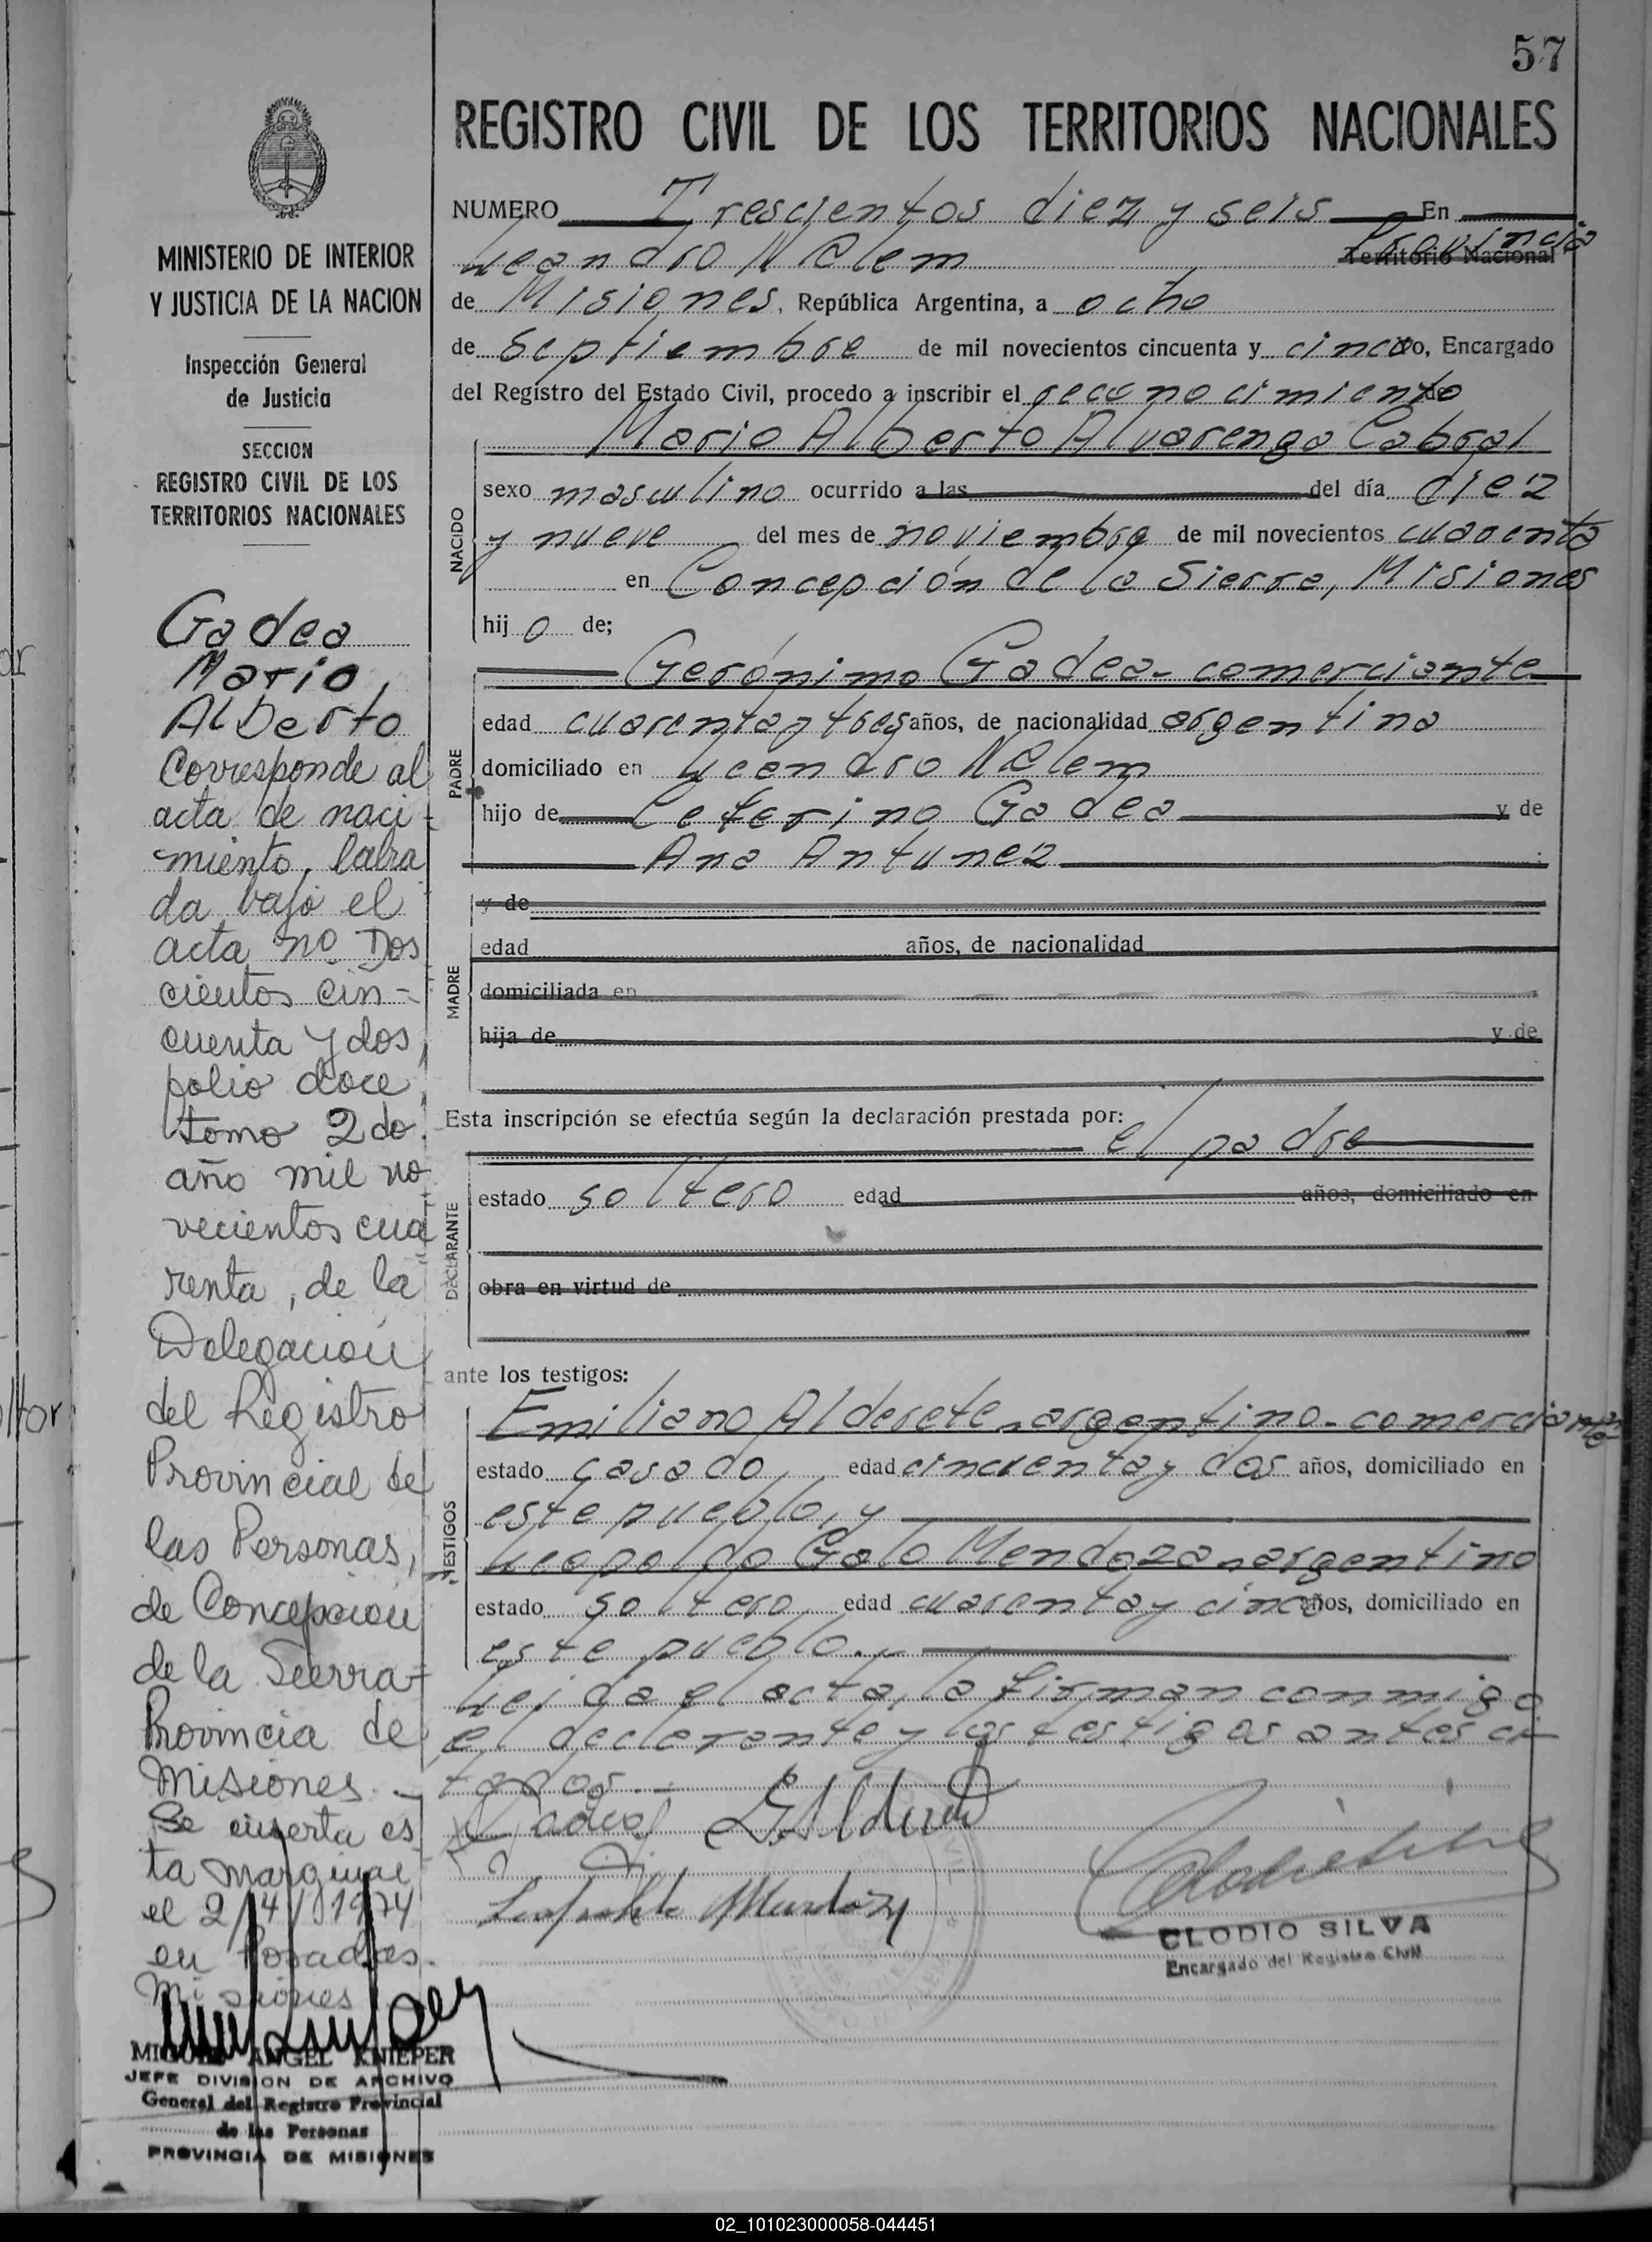 57
REGISTRO CIVIL DE LOS TERRITORIOS NACIONALES
MINISTERIO DE INTERIOR
Y JUSTICIA DE LA NACION
Inspección General
de Justicia
SECCION
REGISTRO CIVIL DE LOS
TERRITORIOS NACIONALES
Gadea
Mario
Alberto
Corresponde al
acta de naci-
miento, labra
da, bajo el
acta nº Dos
cientos cin-
cuenta y dos,
folio doce,
tomo 2do.
año mil no
vecientos cua
renta, de la
Delegación
del Registro
Provincial de
las Personas,
de Concepción
de la Sierra-
Provincia de
Misiones.-
Se inserta es
ta marginal
el 2/4/1974
en Posadas.
Misiones
MIGUEL ANGEL KNIEPER
JEFE DIVISION DE ARCHIVO
General del Registro Provincial
de las Personas
PROVINCIA DE MISIONES
NUMERO Trescientos diez y seis En
Leandro N Alem Provincia Territorio Nacional
de Misiones, República Argentina, a ocho
de septiembre de mil novecientos cincuenta y cinco, Encargado
del Registro del Estado Civil, procedo a inscribir el reconocimiento de
NACIDO
Mario Alberto Alvarenga Cabral
sexo masculino ocurrido a las del día diez
y nueve del mes de noviembre de mil novecientos cuarenta
en Concepción de la Sierra, Misiones
hijo de;
PADRE
Gerónimo Gadea- comerciante
edad cuarenta y tres años, de nacionalidad argentina
domiciliado en Leandro N Alem
hijo de Ceferino Gadea y de
Ana Antunez
MADRE
y de
edad años, de nacionalidad
domiciliada en
hija de y de
Esta inscripción se efectúa según la declaración prestada por:
el padre
DECLARANTE
estado soltero edad años, domiciliado en
obra en virtud de
ante los testigos:
TESTIGOS
Emiliano Alderete, argentino- comerciante
estado casado, edad cincuenta y dos años, domiciliado en
este pueblo, y
Leopoldo Galo Mendoza, argentino
estado soltero, edad cuarenta y cinco años, domiciliado en
este pueblo.-
Leida el acta, la firman conmigo
el declarante y los testigos antes ci-
tados.-
CLODIO SILVA
Encargado del Registro Civil
02_101023000058-044451